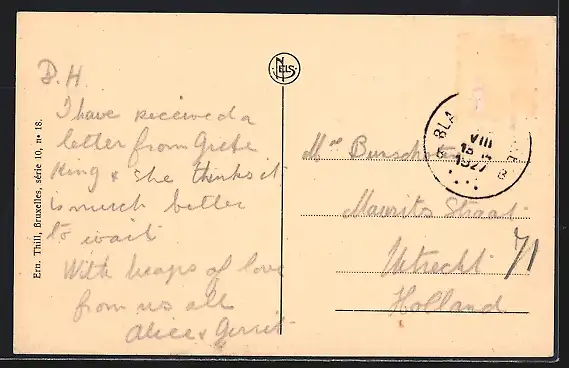 D.H.
I have received a
letter from Grete
King & she thinks it
is much better
to wait
With heaps of love
from us all
Alice & Gerrit
Ern. Thill, Bruxelles, série 10, n° 18.
NELS
BLA
VIII
1927
B
Maurits Straat
71
Utrecht
Holland